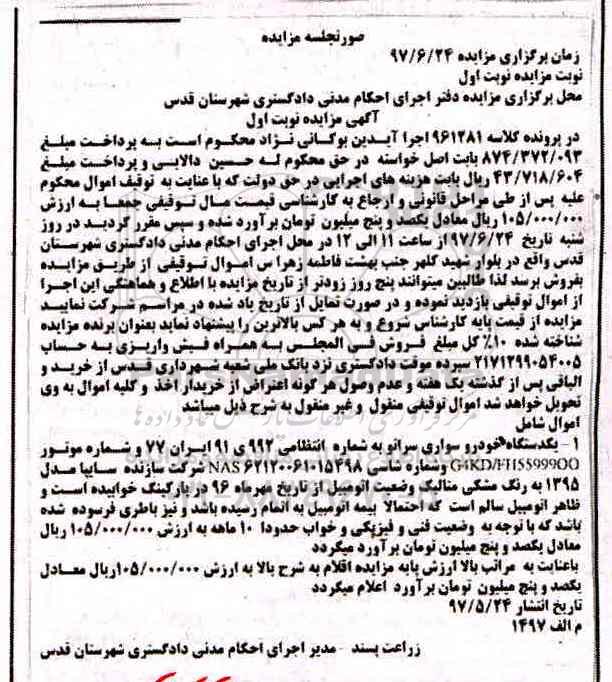 صورتجلسه مزایده
زمان برگزاری مزایده ۹۷/۶/۲۴
نوبت مزایده نوبت اول
محل برگزاری مزایده دفتر اجرای احکام مدنی دادگستری شهرستان قدس
آگهی مزایده نوبت اول
در پرونده کلاسه ۹۶۱۲۸۱ اجرا آیدین بوکانی نژاد محکوم است به پرداخت مبلغ
۸۷۴/۳۷۲/۰۹۳ بابت اصل خواسته در حق محکوم له حسین دالایی و پرداخت مبلغ
۴۳/۷۱۸/۶۰۴ ریال بابت هزینه های اجرایی در حق دولت که با عنایت به توقیف اموال محکوم
علیه پس از طی مراحل قانونی و ارجاع به کارشناسی قیمت مال توقیفی جمعا به ارزش
۱۰۵/۰۰۰/۰۰۰ ریال معادل یکصد و پنج میلیون تومان برآورد شده و سپس مقرر گردید در روز
شنبه تاریخ ۹۷/۶/۲۴ از ساعت ۱۱ الی ۱۲ در محل اجرای احکام مدنی دادگستری شهرستان
قدس واقع در بلوار شهید کلهر جنب بهشت فاطمه زهرا س اموال توقیفی از طریق مزایده
بفروش برسد لذا طالبین میتوانند پنج روز زودتر از تاریخ مزایده با اطلاع و هماهنگی این اجرا
از اموال توقیفی بازدید نموده و در صورت تمایل از تاریخ یاد شده در مراسم شرکت نمایید
مزایده از قیمت پایه کارشناس شروع و به هر کس بالاترین را پیشنهاد نماید بعنوان برنده مزایده
شناخته شده ۱۰٪ کل مبلغ فروش فی المجلس به همراه فیش واریزی به حساب
۲۱۷۱۲۹۹۰۵۴۰۰۵ سپرده موقت دادگستری نزد بانک ملی شعبه شهرداری قدس از خرید و
الباقی پس از گذشته یک هفته و عدم وصول هر گونه اعتراض از خریدار اخذ و کلیه اموال به وی
تحویل خواهد شد اموال توقیفی منقول و غیر منقول به شرح ذیل میباشد
اموال شامل
۱ - یکدستگاه خودرو سواری سراتو به شماره انتظامی ۹۹۲ ی ۹۱ ایران ۷۷ و شماره موتور
G4KD/FH559990O وشماره شاسی NAS ۶۲۱۲۰۰۶۱۰۱۵۴۹۸ شرکت سازنده سایپا مدل
۱۳۹۵ به رنگ مشکی متالیک وضعیت اتومبیل از تاریخ مهرماه ۹۶ در پارکینگ خوابیده است و
ظاهر اتومبیل سالم است که احتمالا بیمه اتومبیل به اتمام رسیده باشد و نیز باطری فرسوده شده
باشد که با توجه به وضعیت فنی و فیزیکی و خواب حدودا ۱۰ ماهه به ارزش ۱۰۵/۰۰۰/۰۰۰ ریال
معادل یکصد و پنج میلیون تومان برآورد میگردد
باعنایت به مراتب بالا ارزش پایه مزایده اقلام به شرح بالا به ارزش ۱۰۵/۰۰۰/۰۰۰ریال معادل
یکصد و پنج میلیون تومان برآورد اعلام میگردد
تاریخ انتشار ۹۷/۵/۲۴
م الف ۱۴۹۷
زراعت پسند - مدیر اجرای احکام مدنی دادگستری شهرستان قدس